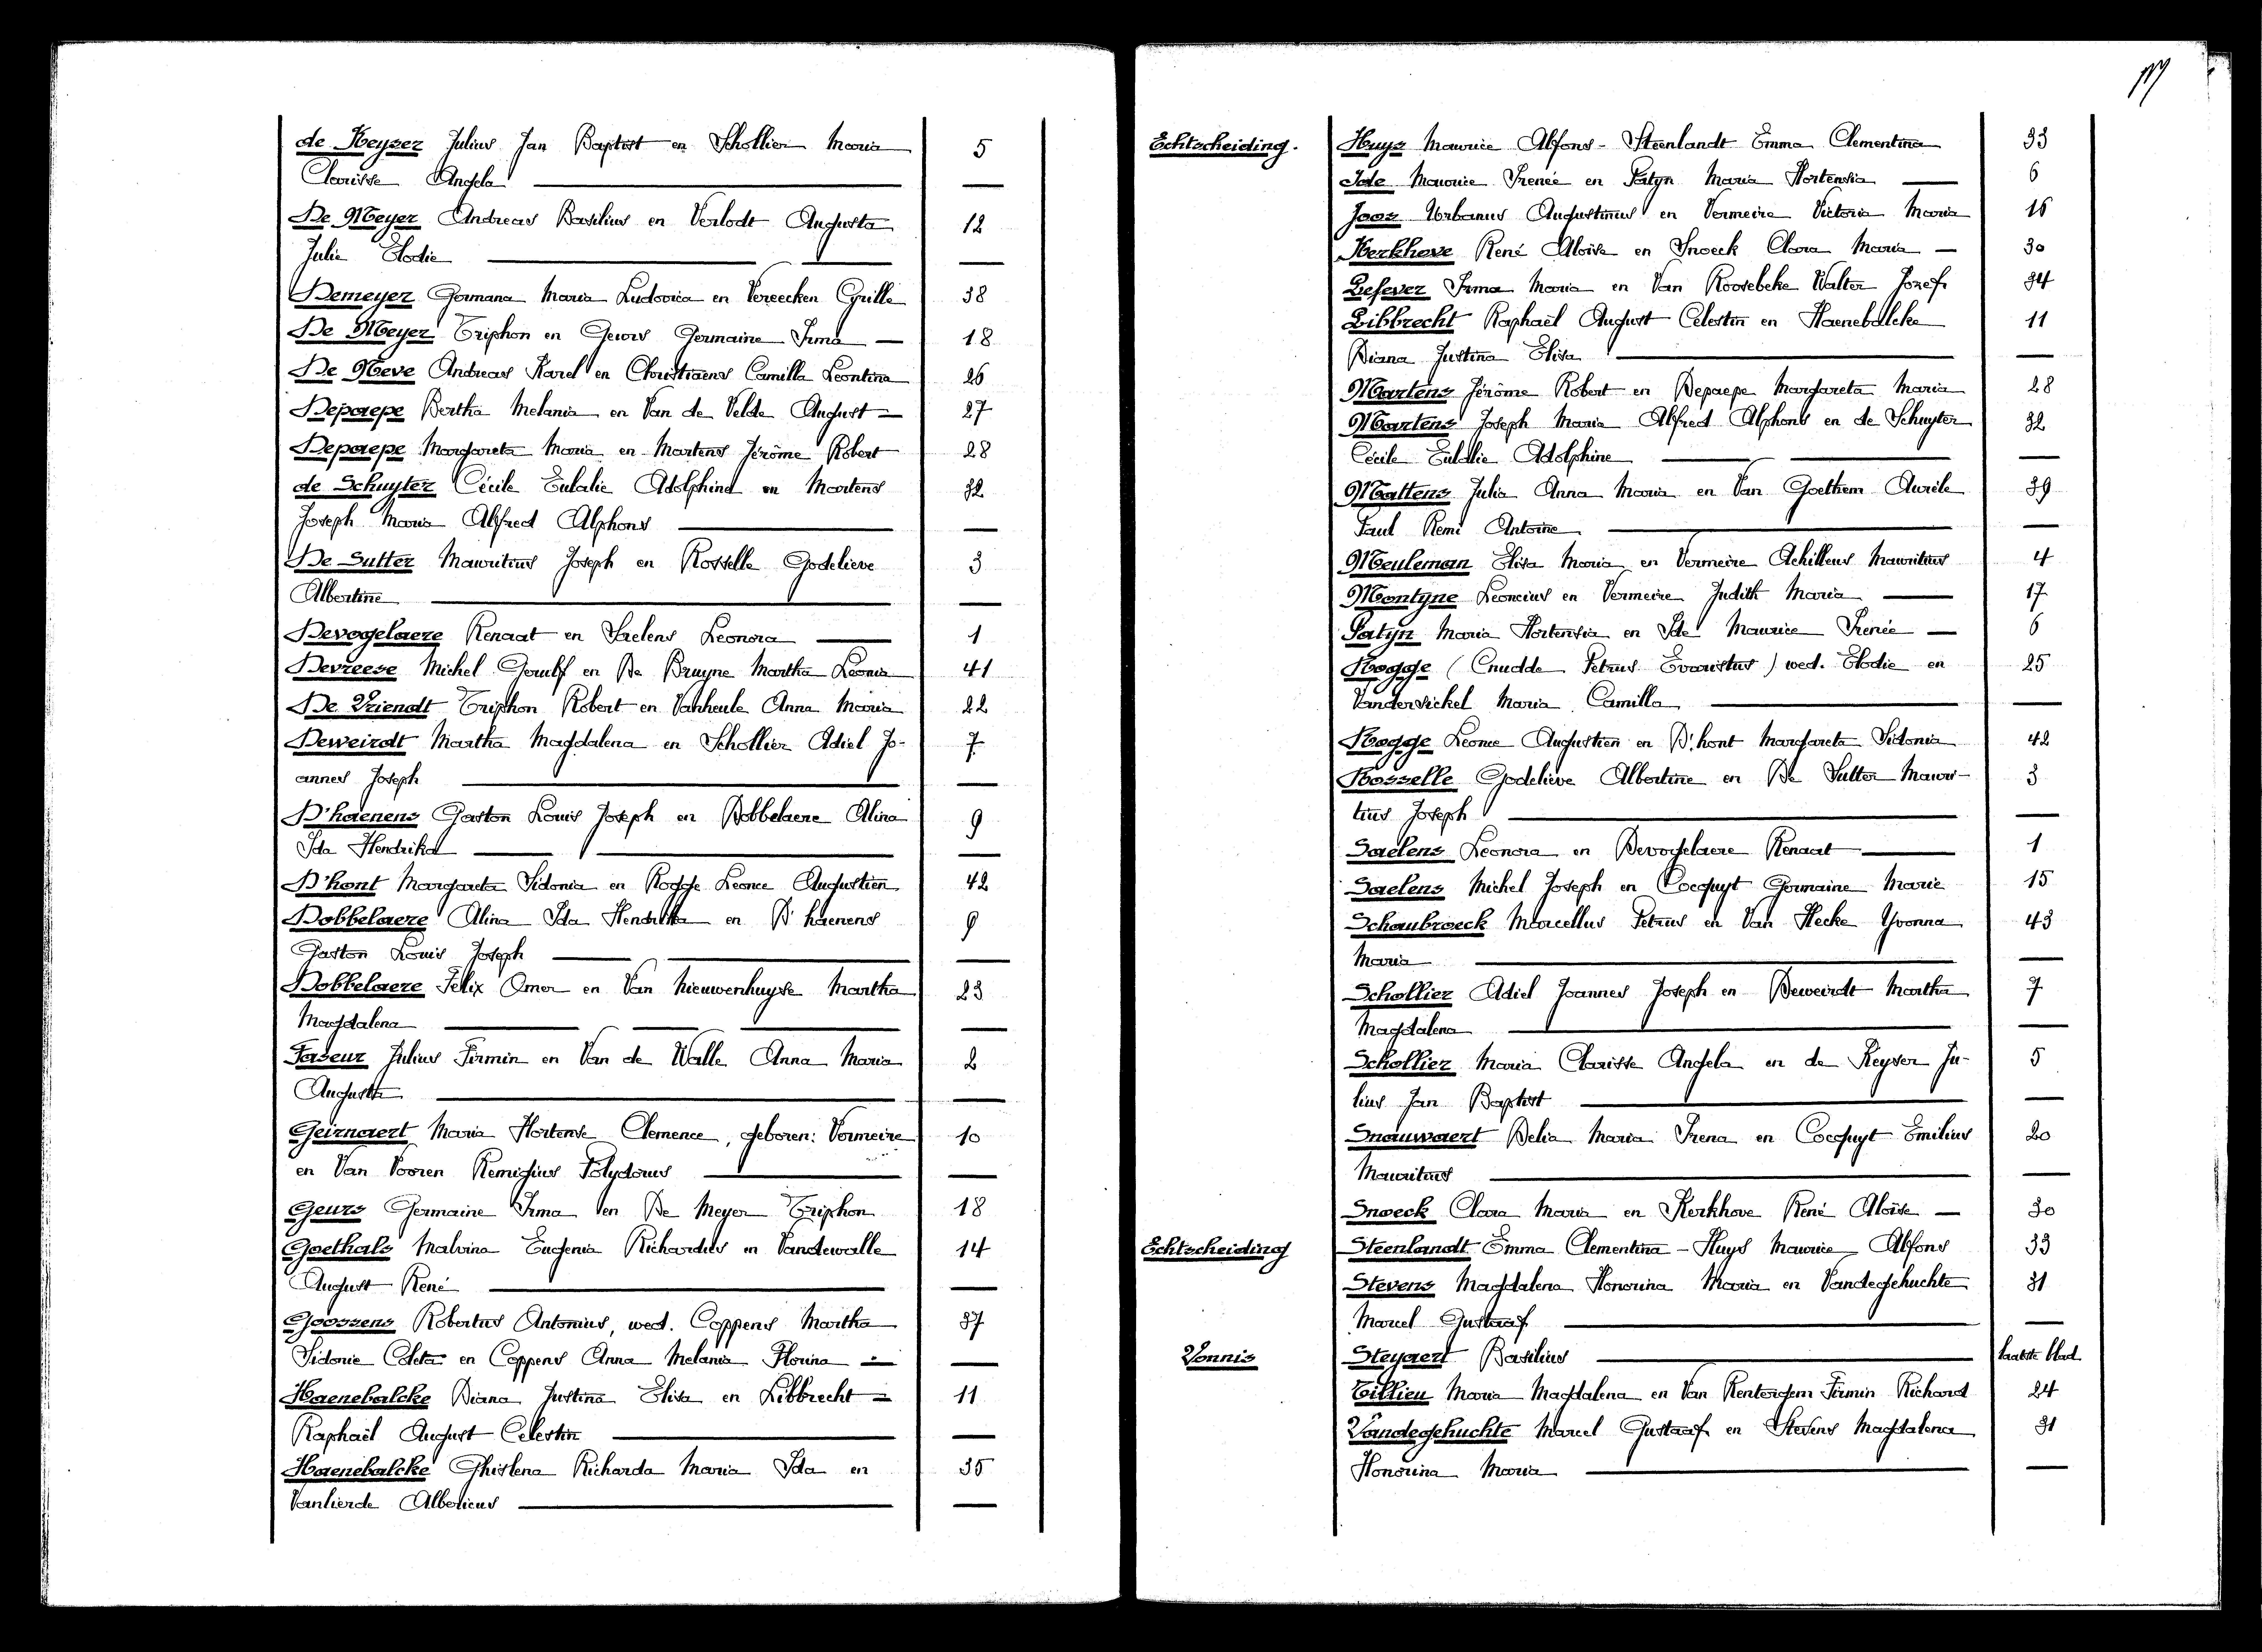 de Keyser Julius Jan Baptist en Schollier Maria 5
Clarisse Angela —
De Meyer Andreas Basilius en Verlodt Augusta 12
Julie Elodie —
Demeyer Germana Maria Ludovica en Vereecken Cyrille 38
De Meyer Triphon en Geurs Germaine Irma — 18
De Neve Andreas Karel en Christiaens Camilla Leontina 26
Depaepe Bertha Melania en Van de Velde August — 27
Depaepe Margareta Maria en Martens Jérôme Robert 28
de Schuyter Cécile Eulalie Adolphine en Martens 32
Joseph Maria Alfred Alphons —
De Sutter Mauritius Joseph en Rosselle Godelieve 3
Albertine —
Devogelaere Renaat en Saelens Leonora — 1
Devreese Michel Gerulf en De Bruyne Martha Leonia 41
De Vriendt Triphon Robert en Vanheule Anna Maria 22
Deweirdt Martha Magdalena en Schollier Adiel Jo- 7
annes Joseph —
D'haenens Gaston Louis Joseph en Dobbelaere Alina 9
Ida Hendrika —
D'hont Margareta Sidonia en Rogge Leonce Augustien 42
Dobbelaere Alina Ida Hendrika en D'haenens 9
Gaston Louis Joseph —
Dobbelaere Felix Omer en Van Nieuwenhuyse Martha 23
Magdalena —
Faseur Julius Firmin en Van de Walle Anna Maria 2
Augusta —
Geirnaert Maria Hortense Clemence, geboren: Vermeire 10
en Van Vooren Remigius Polydorus —
Geurs Germaine Irma en De Meyer Triphon 18
Goethals Malvina Eugenia Richardus en Vandewalle 14
August René —
Goossens Robertus Antonius, wed. Coppens Martha 37
Sidonie Coleta en Coppens Anna Melania Florina —
Haenebalcke Diana Justina Elisa en Libbrecht — 11
Raphaël August Celestin —
Haenebalcke Ghislena Richarda Maria Ida en 35
Vanlierde Albericus —
Echtscheiding. Huys Maurice Alfons - Steenlandt Emma Clementina 33
Ide Maurice Irenée en Patyn Maria Hortensia — 6
Joos Urbanus Augustinus en Vermeire Victoria Maria 16
Kerkhove René Aloïse en Snoeck Clara Maria — 30
Lefever Irma Maria en Van Roosebeke Walter Jozef 34
Libbrecht Raphaël August Celestin en Haenebalcke 11
Diana Justina Elisa —
Martens Jérôme Robert en Depaepe Margareta Maria 28
Martens Joseph Maria Alfred Alphons en de Schuyter 32
Cécile Eulalie Adolphine —
Mattens Julia Anna Maria en Van Goethem Aurèle 39
Paul Remi Antoine —
Meuleman Elisa Maria en Vermeire Achilleus Mauritius 4
Montyne Leoncius en Vermeire Judith Maria — 17
Patyn Maria Hortensia en Ide Maurice Irenée — 6
Rogge (Cnudde Petrus Evaristus) wed. Elodie en 25
Vandersickel Maria Camilla —
Rogge Leonce Augustien en D'hont Margareta Sidonia 42
Rosselle Godelieve Albertine en De Sutter Mauri- 3
tius Joseph —
Saelens Leonora en Devogelaere Renaat — 1
Saelens Michel Joseph en Cocquyt Germaine Marie 15
Schaubroeck Marcellus Petrus en Van Hecke Yvonna 43
Maria —
Schollier Adiel Joannes Joseph en Deweirdt Martha 7
Magdalena —
Schollier Maria Clarisse Angela en de Keyser Ju- 5
lius Jan Baptist —
Snauwaert Delia Maria Irena en Cocquyt Emilius 20
Mauritius —
Snoeck Clara Maria en Kerkhove René Aloïse — 30
Echtscheiding Steenlandt Emma Clementina - Huys Maurice Alfons 33
Stevens Magdalena Honorina Maria en Vandegehuchte 31
Marcel Gustaaf —
Vonnis Steyaert Basilius — laatste blad
Tillieu Maria Magdalena en Van Renterghem Firmin Richard 24
Vandegehuchte Marcel Gustaaf en Stevens Magdalena 31
Honorina Maria —